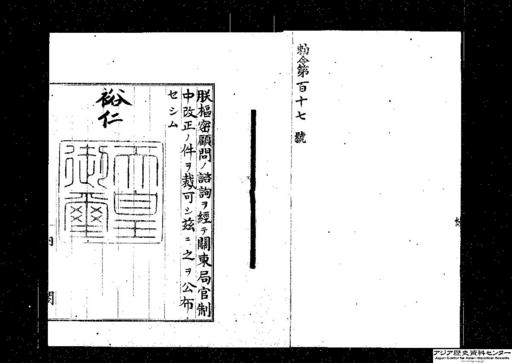 勅令第百十七號
朕樞密顧問ノ諮詢ヲ經テ關東局官制
中改正ノ件ヲ裁可シ茲ニ之ヲ公布
セシム
裕仁
天皇
御璽
内閣
アジア歴史資料センター
Japan Center for Asian Historical Records